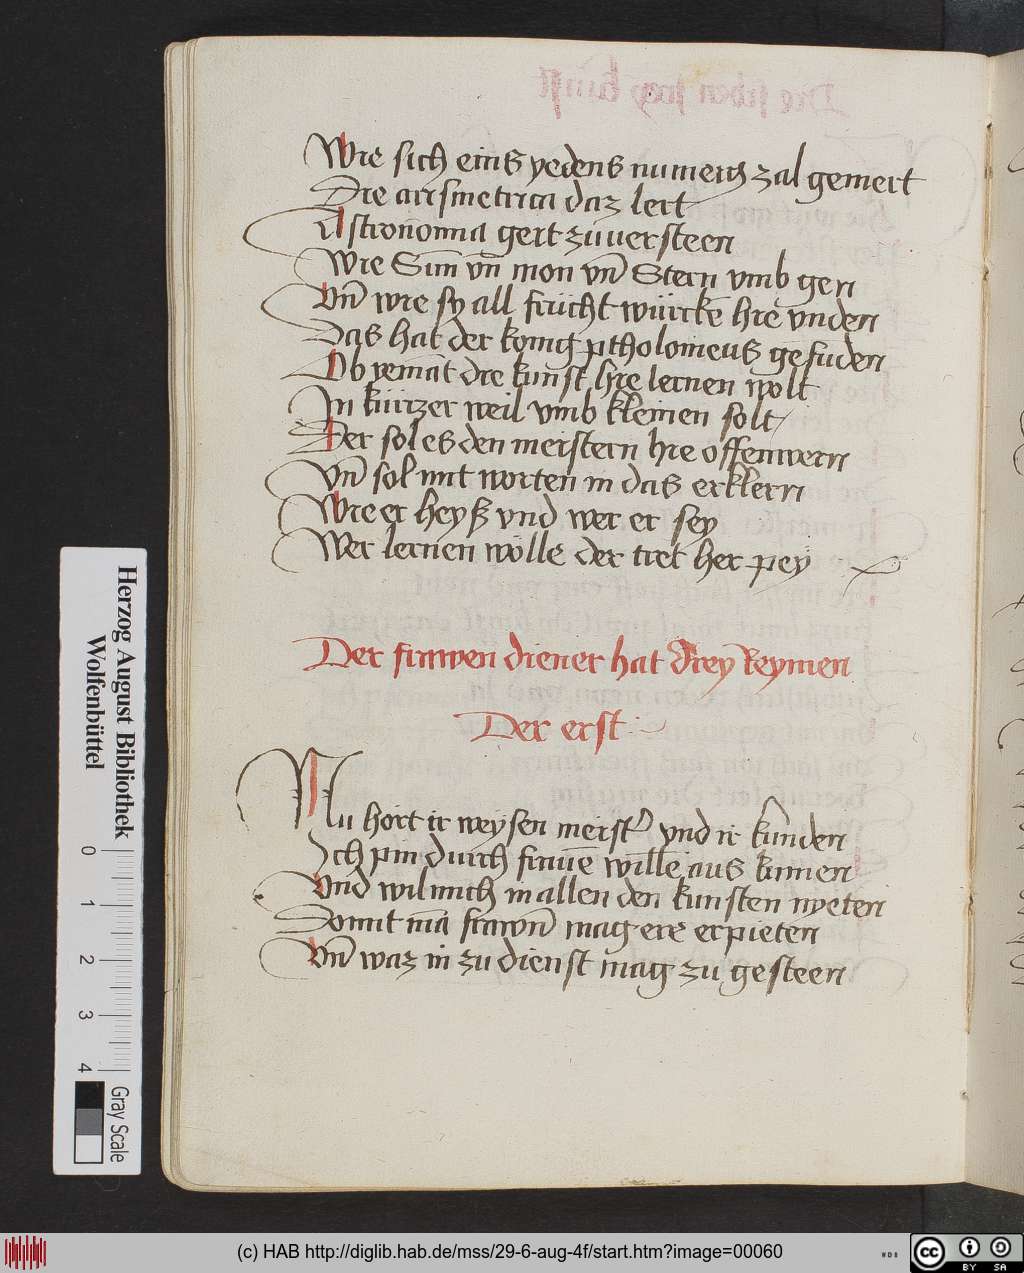 Wie sich eins yedens numerus zal gemert
Die arismetrica daz lert
Astronomia gert zuuersteen
Wie Sūn vn̄ mon vn̄ Stern vmb gen
Vn̄ wie sy all frücht würcke hie vnden
Das hat der konig ptholomeus gefūden
Ob yemāt die kunst hie lernen wolt
In kürtzer weil vmb kleinen solt
Der sol es den meistern hie offenwern
Vn̄ sol mit worten in das erklern
Wie er heyß vnd wer er sey
Wer lernen wölle der tret her pey
Der frawen diener hat Drey Reymen
Der erst
Nu hort ir weysen meister vnd ir kunden
Ich pin durch frauē wille aus kumen
Vnd wil mich in allen den kunsten nyeten
Domit mā frawn̄ mag ere erpieten
Vn̄ waz in zu dienst mag zu gesteen
Herzog August Bibliothek
Wolfenbüttel
0 1 2 3 4
Gray Scale
(c) HAB http://diglib.hab.de/mss/29-6-aug-4f/start.htm?image=00060
WDB
cc BY SA